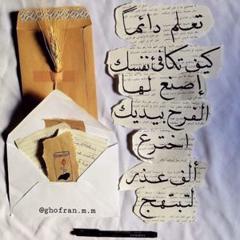 تعلم دائماً
كيف تكافئ نفسك
إصنع لها
الفرح بيديك
اخترع
ألف عذر
لتبتهج
@ghofran.m.m